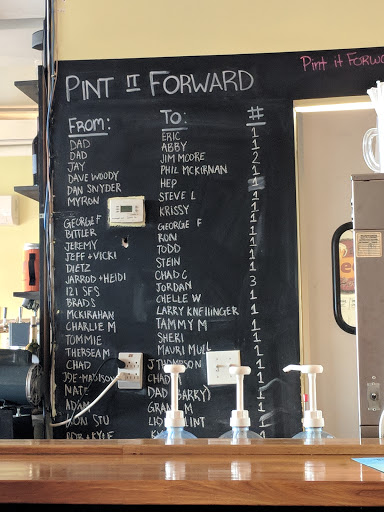 PINT IT FORWARD
Pint it FORWA
FROM: TO: #
DAD ERIC 1
DAD ABBY 1
JAY JIM MOORE 2
DAVE WOODY PHIL MCKIRNAN 1
DAN SNYDER HEP 1
MYRON STEVE L 1
GEORGE F KRISSY 1
BITTLER GEORGE F 1
JEREMY RON 1
JEFF+VICKI TODD 1
DIETZ STEIN 1
JARROD+HEIDI CHAD C 3
121 SFS JORDAN 1
BRAD S CHELLE W 1
MCKIRAHAN LARRY KNELLINGER 1
CHARLIE M TAMMY M 1
TOMMIE SHERI 1
THERSEAM MAURI MULL 1
CHAD J THOMPSON 1
JOE-MADISON CHAD 1
NATE DAD (BARRY) 1
ADAM 1
RON STU 1